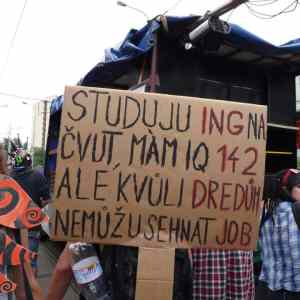 STUDUJU ING NA
ČVUT, MÀM IQ 142
ALE, KVŮLI DREDŮM
NEMŮŽU SEHNAT JOB